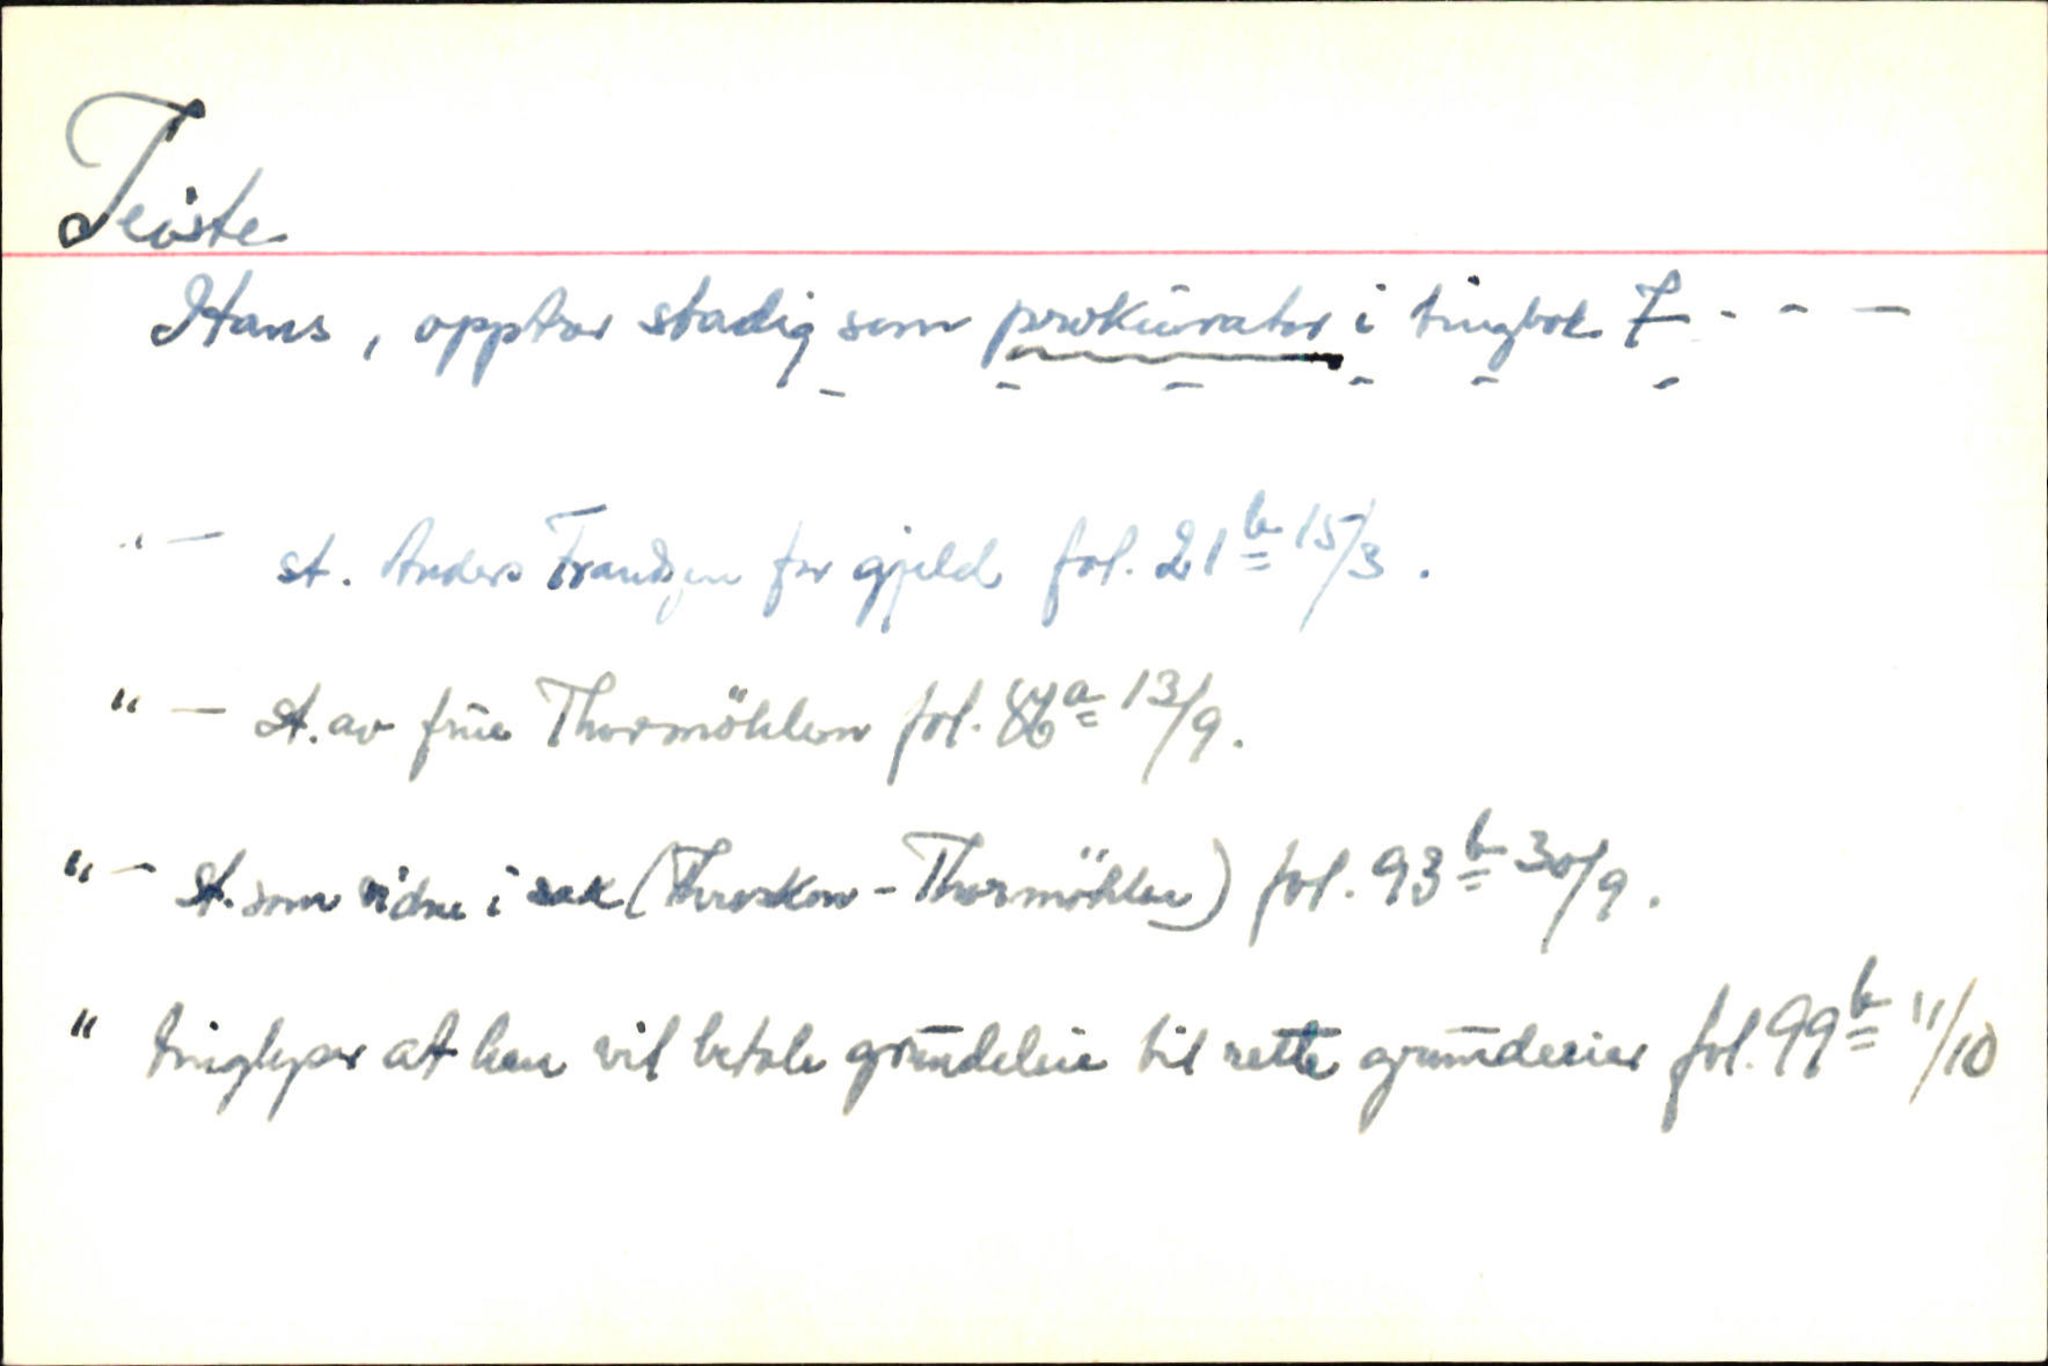 Teiste
Hans, opptrer stadig som prokurator i tingbok 7 - - -
- - - - - -
" - st. Anders Frandsen for gjeld fol. 21 b 15/3.
" - st. av frue Thormöhlen fol. 86 a 13/9.
" - st. som vidne i sak ( - Thormöhlen) fol. 93 b 30/9.
" tinglyser at han vil betale grundeleie til rette grundeeier fol. 99 b 11/10